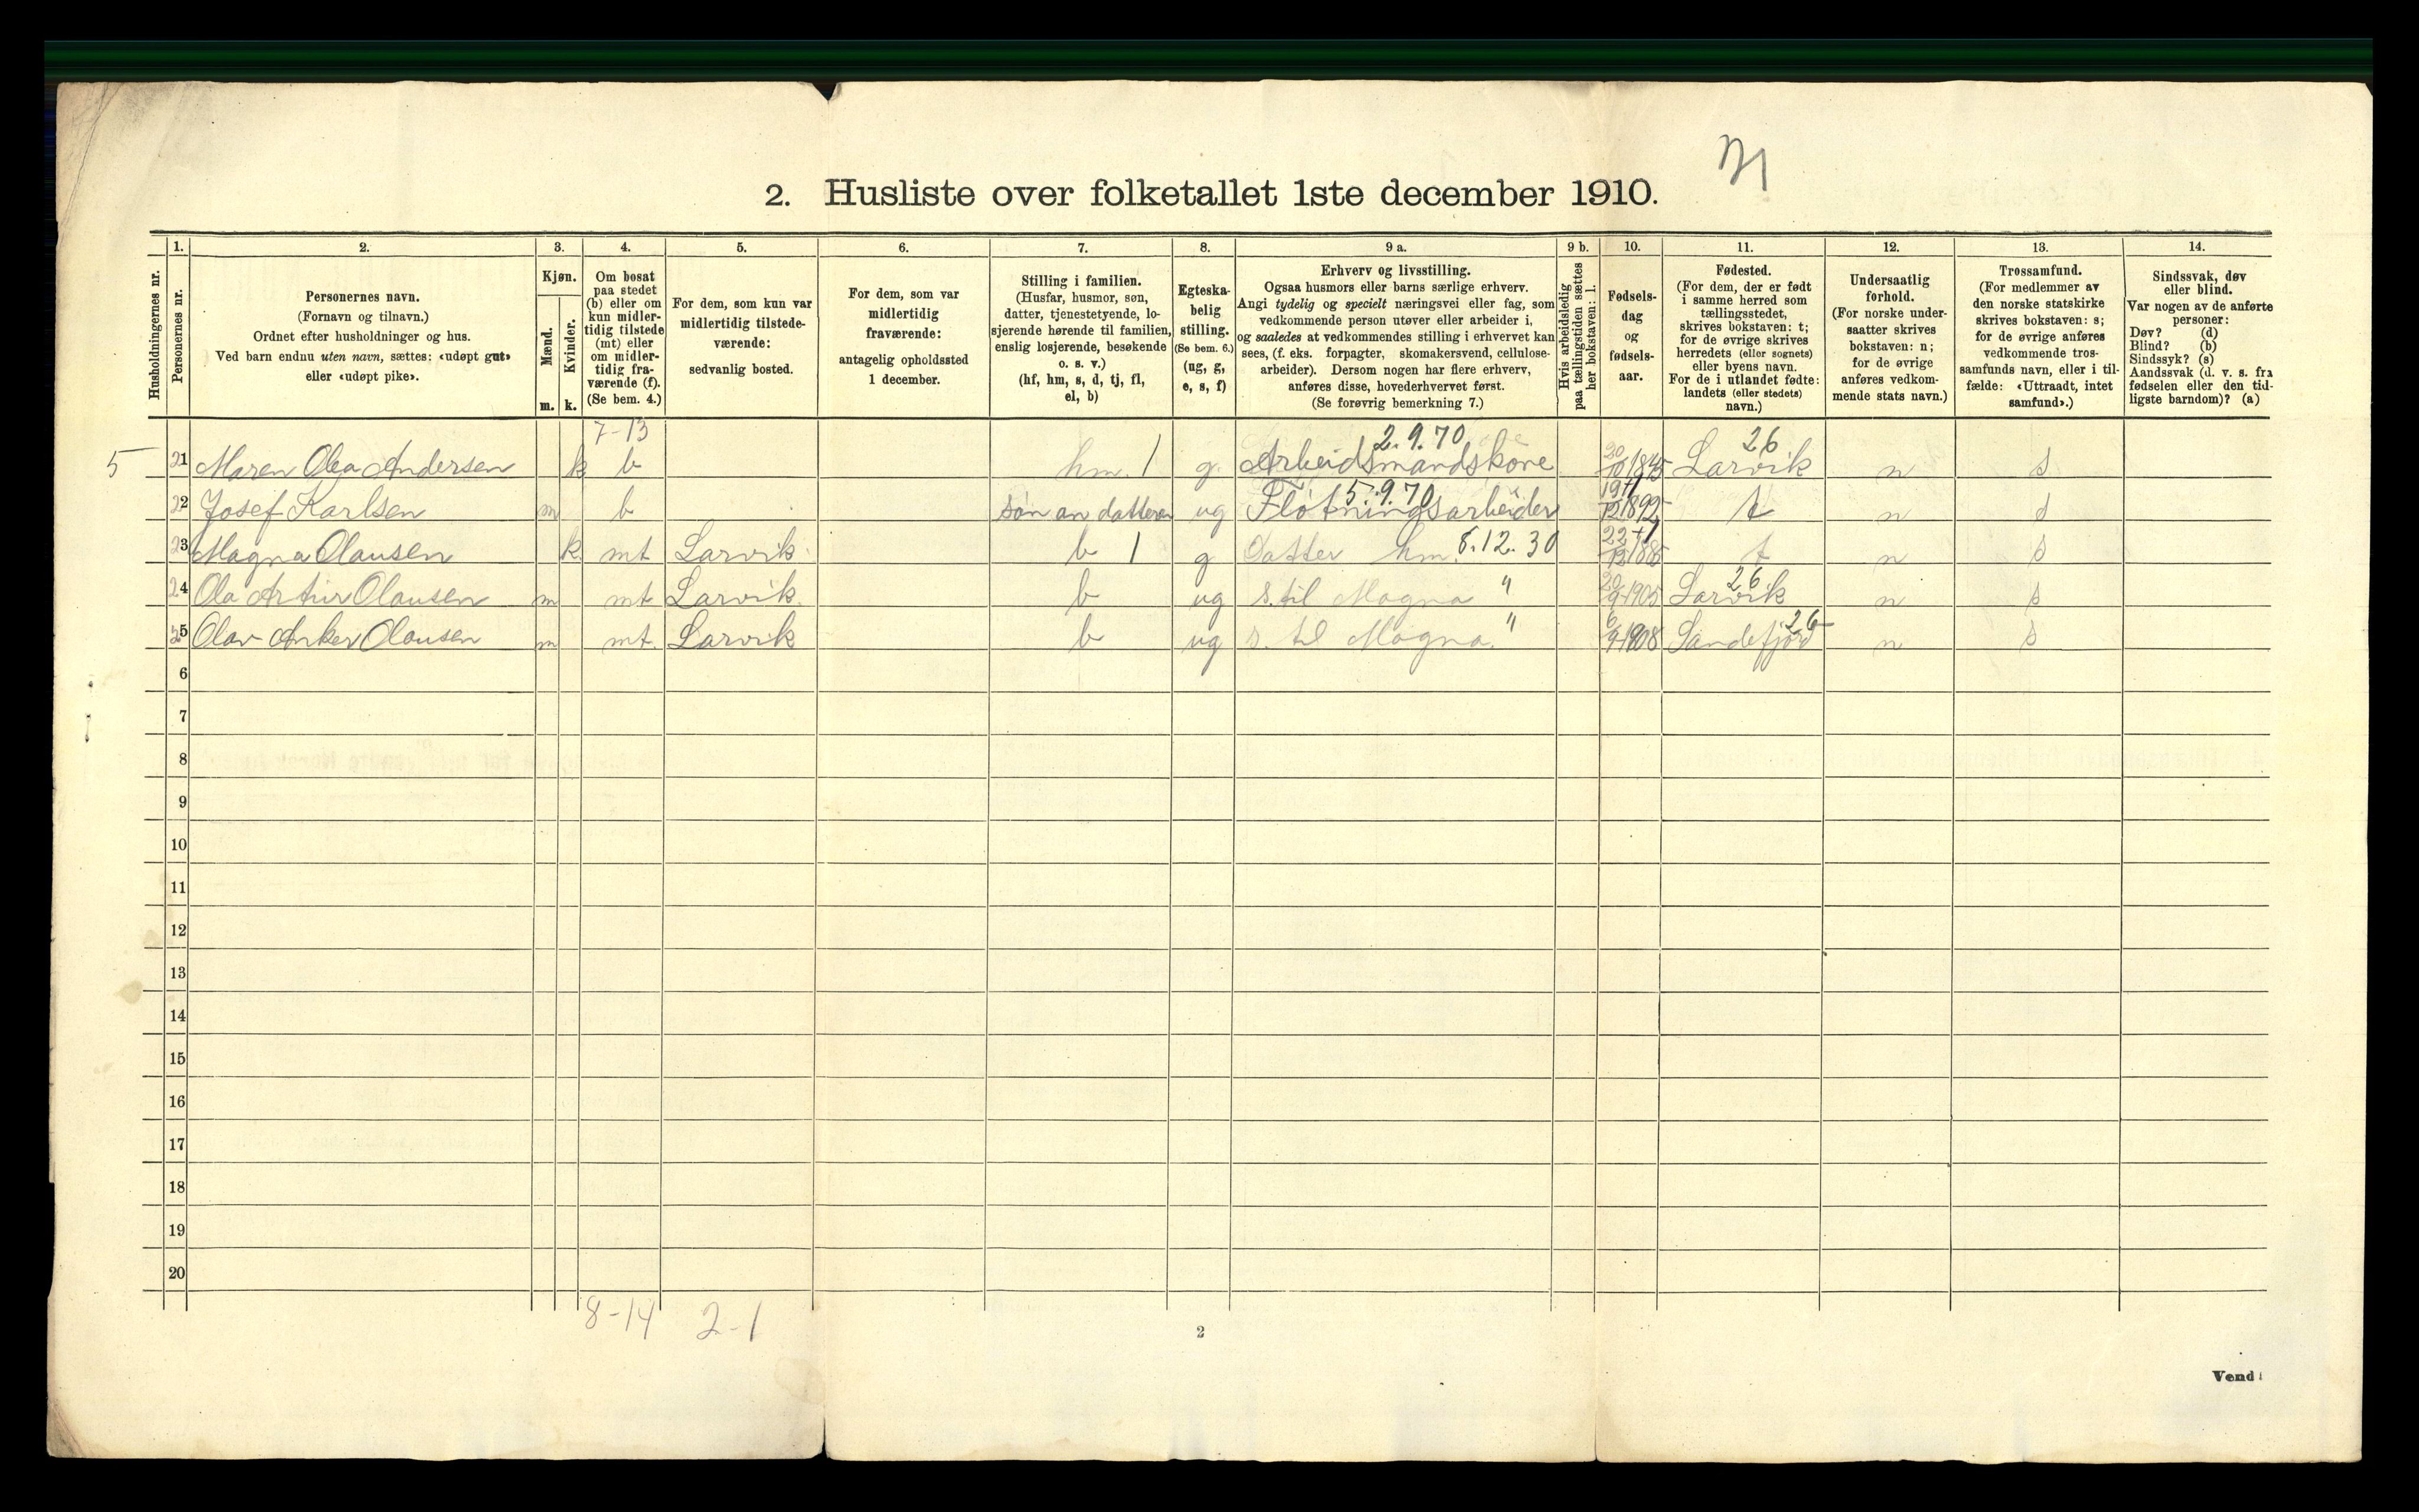 2. Husliste over folketallet 1ste december 1910.
Husholdningernes nr.
1.
Personernes nr.
2.
Personernes navn.
(Fornavn og tilnavn.)
Ordnet efter husholdninger og hus.
Ved barn endnu uten navn, sættes: «udøpt gut»
eller «udøpt pike».
3.
Kjøn.
Mænd.
m.
Kvinder.
k.
4.
Om bosat
paa stedet
(b) eller om
kun midler-
tidig tilstede
(mt) eller
om midler-
tidig fra-
værende (f).
(Se bem. 4.)
5.
For dem, som kun var
midlertidig tilstede-
værende:
sedvanlig bosted.
6.
For dem, som var
midlertidig
fraværende:
antagelig opholdssted
1 december.
7.
Stilling i familien.
(Husfar, husmor, søn,
datter, tjenestetyende, lo-
sjerende hørende til familien,
enslig losjerende, besøkende
o. s. v.)
(hf, hm, s, d, tj, fl,
el, b)
8.
Egteska-
belig
stilling.
(Se bem. 6.)
(ug, g,
e, s, f)
9 a.
Erhverv og livsstilling.
Ogsaa husmors eller barns særlige erhverv.
Angi tydelig og specielt næringsvei eller fag, som
vedkommende person utøver eller arbeider i,
og saaledes at vedkommendes stilling i erhvervet kan
sees, (f. eks. forpagter, skomakersvend, cellulose-
arbeider). Dersom nogen har flere erhverv,
anføres disse, hovederhvervet først.
(Se forøvrig bemerkning 7.)
9 b.
Hvis arbeidsledig
paa tællingstiden sættes
her bokstaven: l.
10.
Fødsels-
dag
og
fødsels-
aar.
11.
Fødested.
(For dem, der er født
i samme herred som
tællingsstedet,
skrives bokstaven: t;
for de øvrige skrives
herredets (eller sognets)
eller byens navn.
For de i utlandet fødte:
landets (eller stedets)
navn.)
12.
Undersaatlig
forhold.
(For norske under-
saatter skrives
bokstaven: n;
for de øvrige
anføres vedkom-
mende stats navn.)
13.
Trossamfund.
(For medlemmer av
den norske statskirke
skrives bokstaven: s;
for de øvrige anføres
vedkommende tros-
samfunds navn, eller i til-
fælde: «Uttraadt, intet
samfund».)
14.
Sindssvak, døv
eller blind.
Var nogen av de anførte
personer:
Døv? (d)
Blind? (b)
Sindssyk? (s)
Aandssvak (d. v. s. fra
fødselen eller den tid-
ligste barndom)? (a)
7-13 2.9.70 26
5 21 Maren Olea Andersen k b hm. 1 g. Arbeidsmandskone 20/10 1845 Larvik n s
5.9.70
22 Josef Karlsen m b søn av datteren ug Fløtningsarbeider 19/12 1892 t n s
23 Magna Olausen k mt Larvik b 1 g Datter hm. 8.12.30 22/12 1885 t n s
26
24 Ola Artur Olausen m mt Larvik. b ug s. til Magna " 20/9 1905 Larvik n s
26
25 Olav Anker Olausen m mt. Larvik b ug s. til Magna. " 6/9 1908 Sandefjord n s
6
7
8
9
10
11
12
13
14
15
16
17
18
19
20
8-14 2-1
2
Vend!